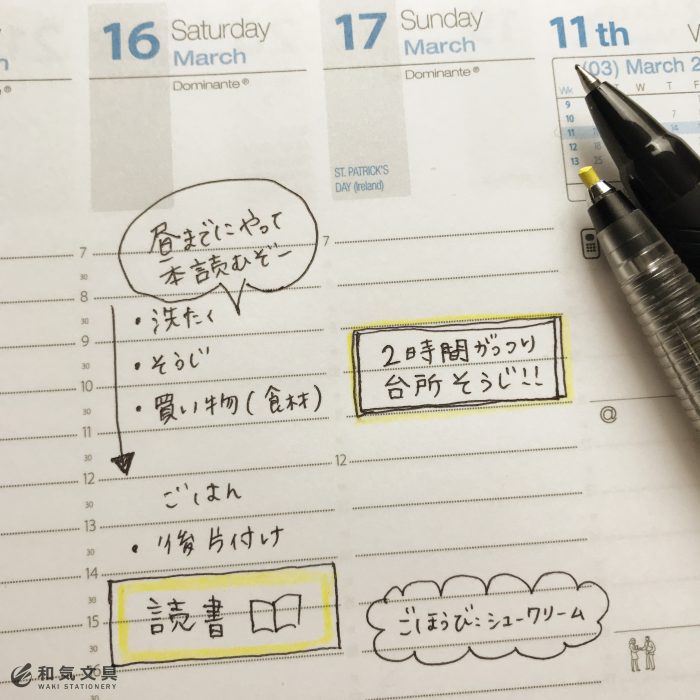 16 Saturday
March
Dominante®
昼までにやって
本読むぞー
・洗たく
・そうじ
・買い物(食材)
ごはん
・後片付け
読書
17 Sunday
March
Dominante®
ST. PATRICK'S
DAY (Ireland)
2時間がっつり
台所そうじ!!
ごほうび:シュークリーム
11th
(03) March 2
Wk
T W T F
9
10 7
11 14
12 18
13 25
7
30
8
30
9
30
10
30
11
30
12
30
13
30
14
30
15
30
7
12
@
和気文具
WAKI STATIONERY